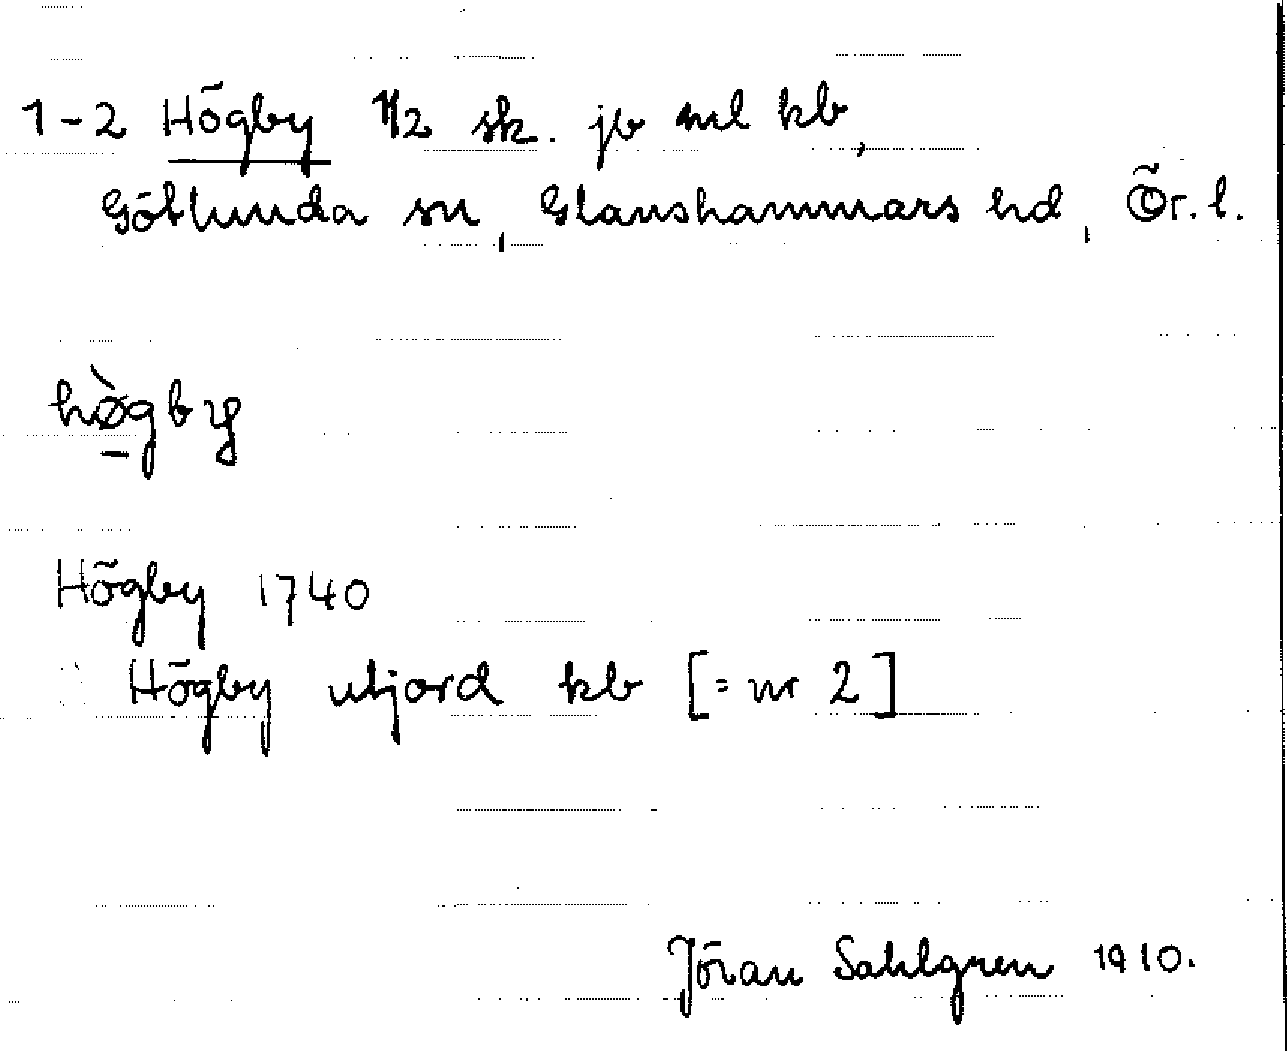 1-2 Högby 1/2 sk. jb ml kb,
Götlunda sn, Glanshammars hd, Ör. l.
hø̀gby
Högby 1740
Högby utjord kb [= nr 2]
Jöran Sahlgren 1910.